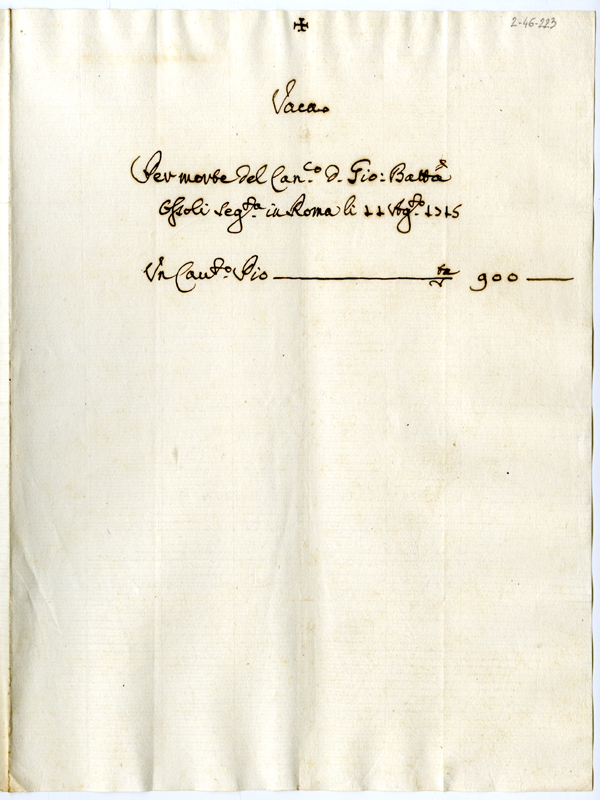 ✠
2-46-223
Vaca
Per morte del Can.co D. Gio: Batta
Ossoli seg.ta in Roma li 11 Ag.to 1715
Un Cau.to Pio 900